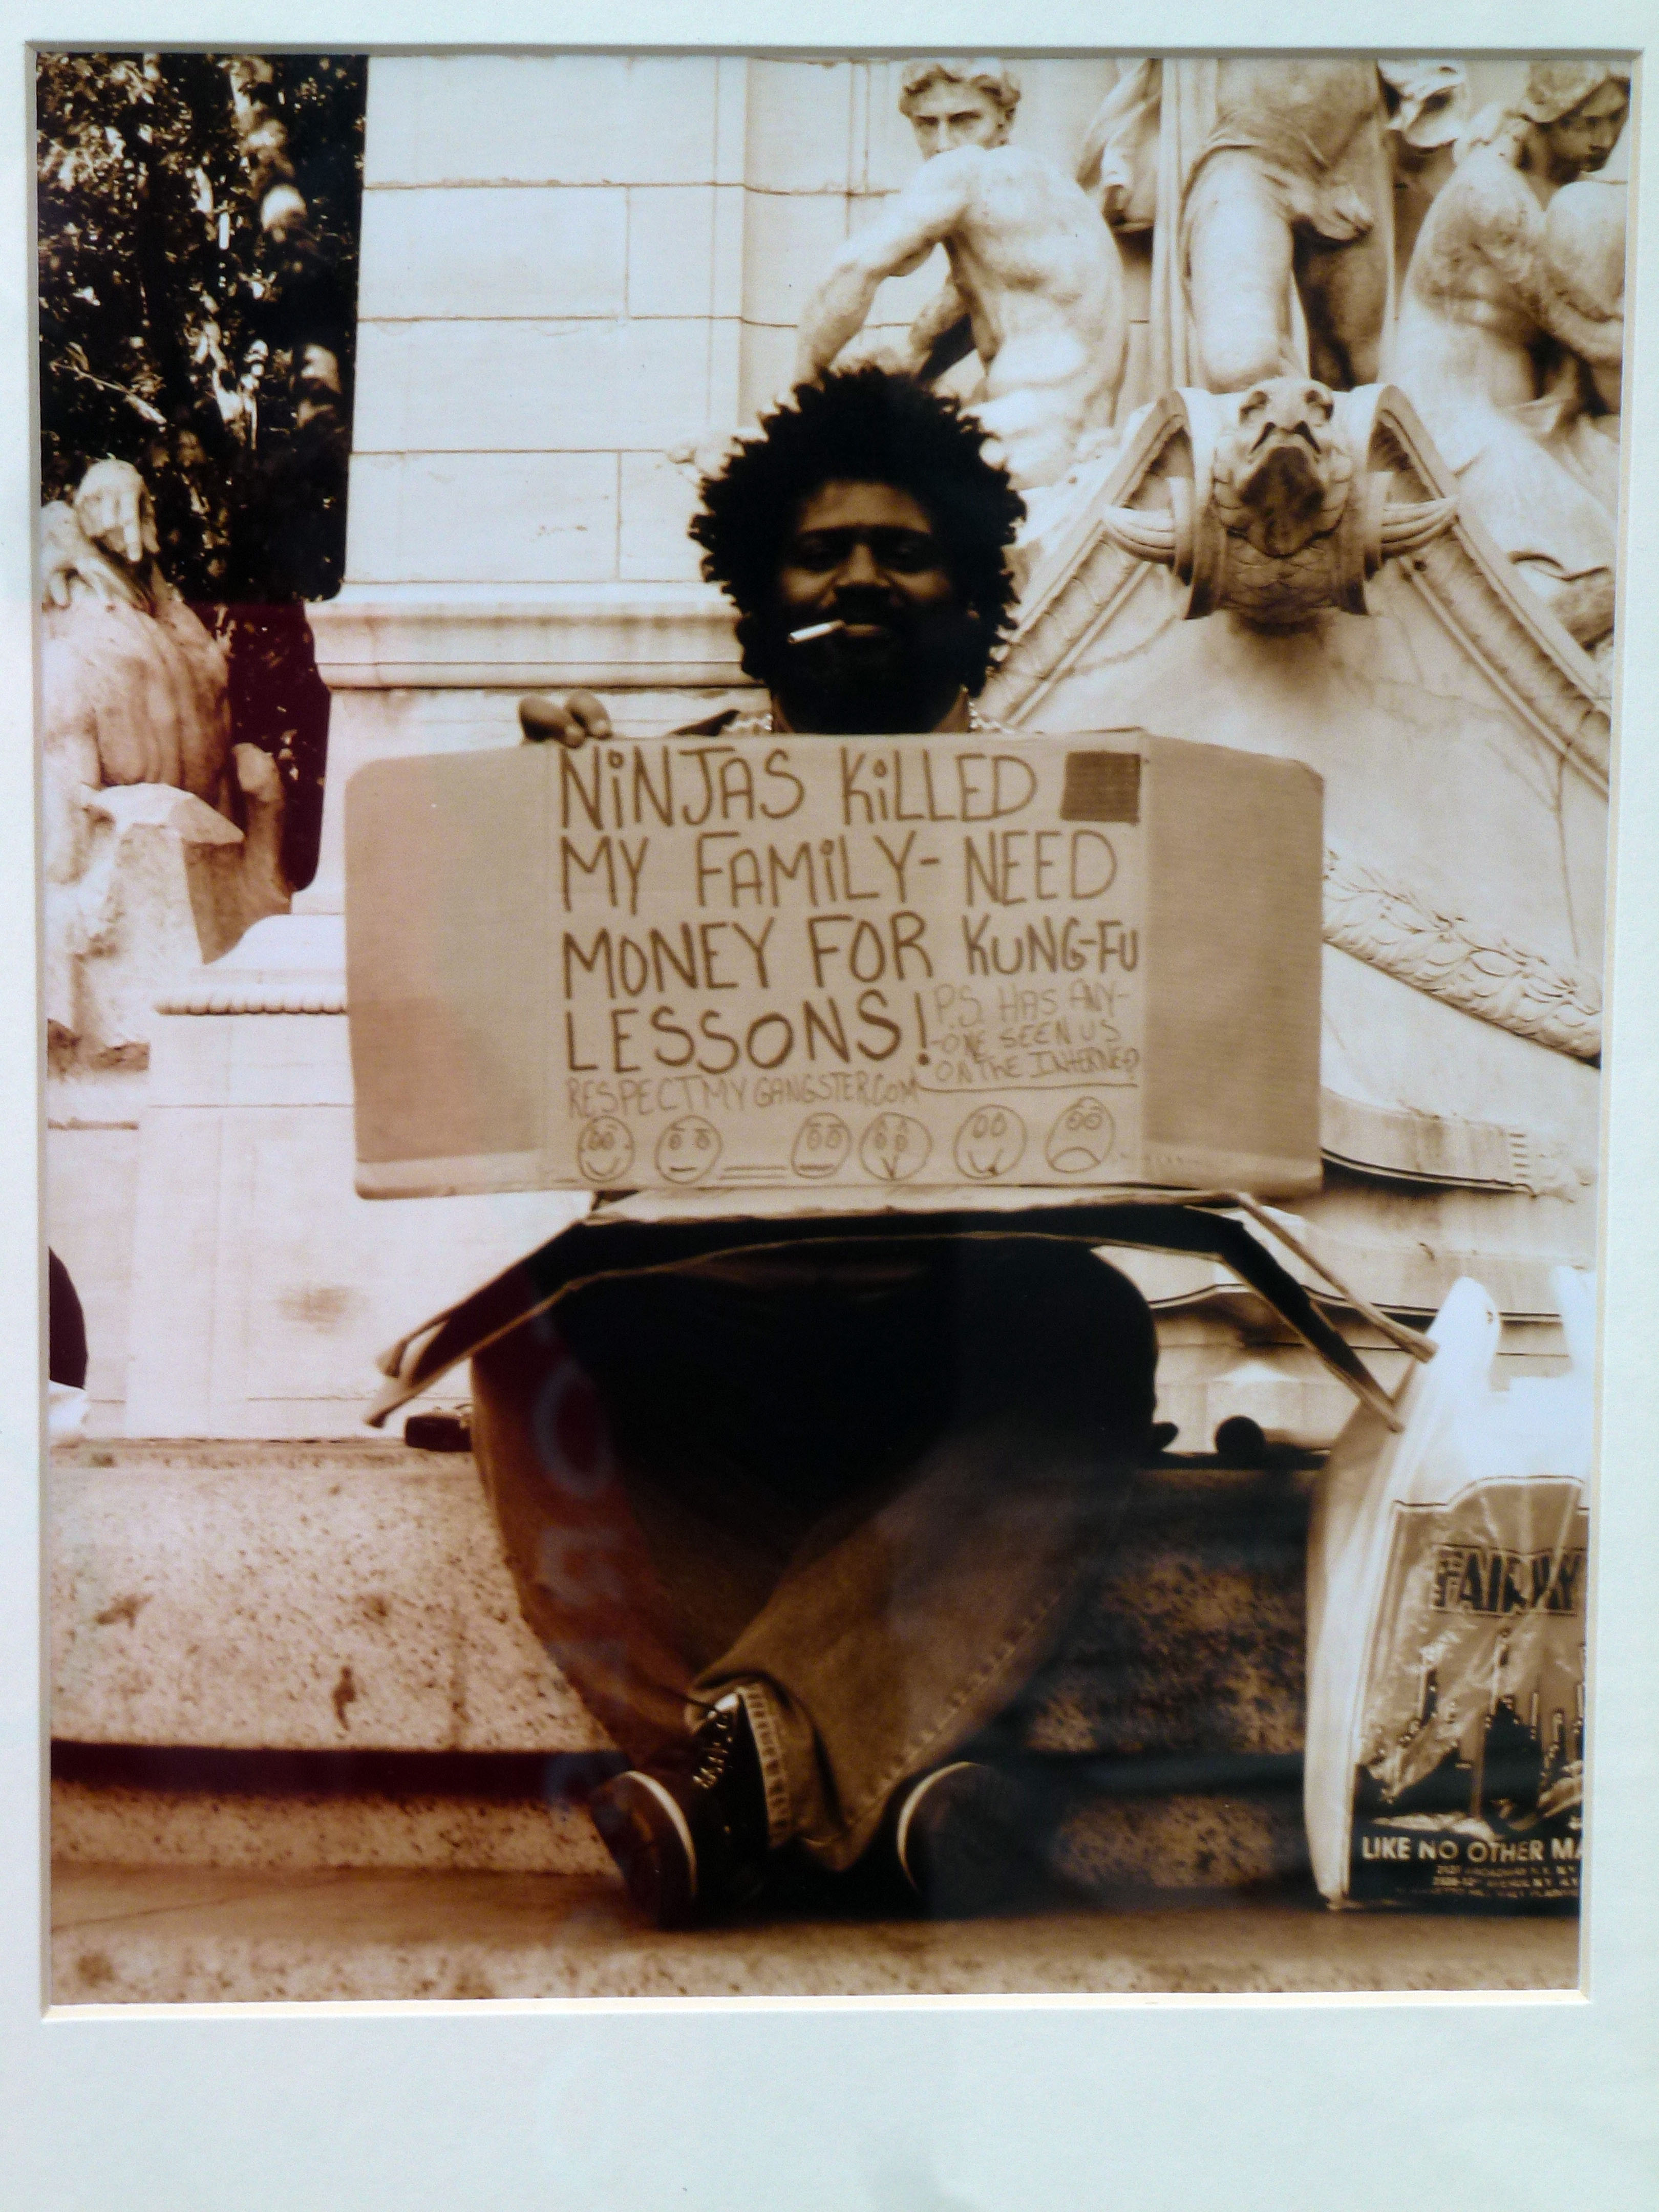 NINJAS KILLED
MY FAMILY- NEED
MONEY FOR KUNG-FU
LESSONS!
P.S. HAS ANY-
-ONE SEEN US
ON THE INTERNED?
RESPECTMYGANGSTER.COM
FAIRWAY
LIKE NO OTHER MA